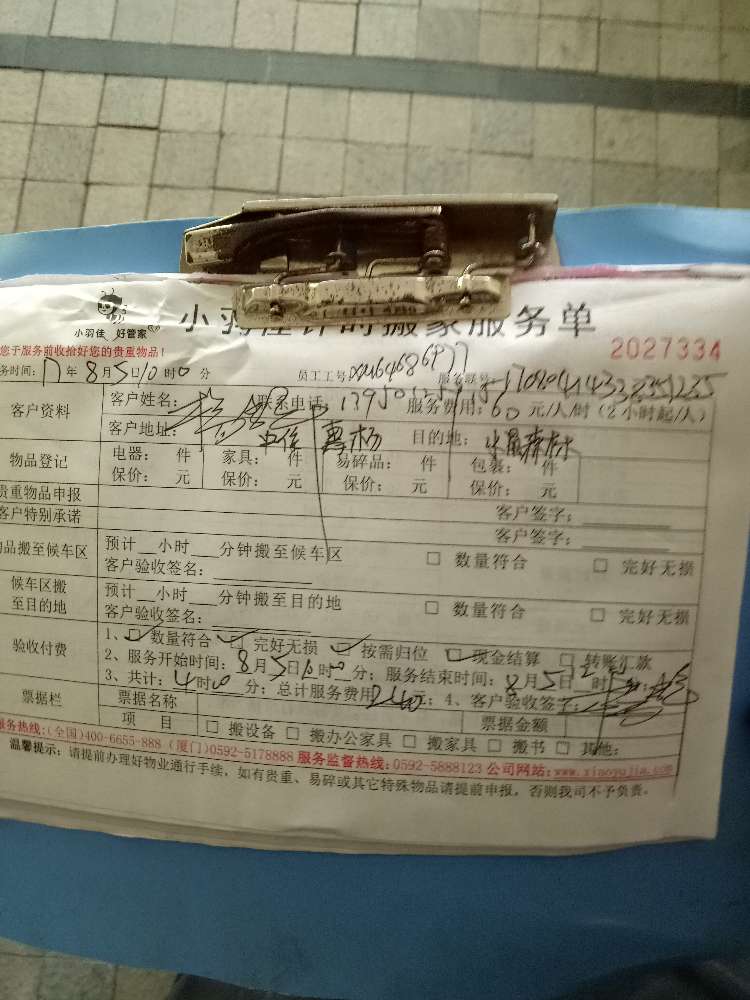 小羽佳 好管家
小羽佳计时搬家服务单
您于服务前收拾好您的贵重物品！
2027334
务时间：17年8月5日10时0分 员工工号： 服务联号：
客户资料 客户姓名： 联系电话： 服务费用：60元/人/时（2小时起/人）
客户地址： 目的地：水晶森林
物品登记 电器： 件 家具： 件 易碎品： 件 包装： 件
保价： 元 保价： 元 保价： 元 保价： 元
贵重物品申报
客户签字：
客户特别承诺
客户签字：
物品搬至候车区 预计__小时___分钟搬至候车区 □ 数量符合 □ 完好无损
客户验收签名：
候车区搬至目的地 预计__小时___分钟搬至目的地 □ 数量符合 □ 完好无损
客户验收签名：
验收付费 1、□ 数量符合 □ 完好无损 □ 按需归位 □ 现金结算 □ 转账汇款
2、服务开始时间：8月5日10时00分；服务结束时间：8月5日 时
3、共计：4时00分；总计服务费用240元；4、客户验收签字：
票据栏 票据名称 票据金额
项 目 □ 搬设备 □ 搬办公家具 □ 搬家具 □ 搬书 □ 其他：
服务热线：(全国)400-6655-888 (厦门)0592-5178888 服务监督热线：0592-5888123 公司网站：www.xiaoyujia.com
温馨提示：请提前办理好物业通行手续，如有贵重、易碎或其它特殊物品请提前申报，否则我司不予负责。